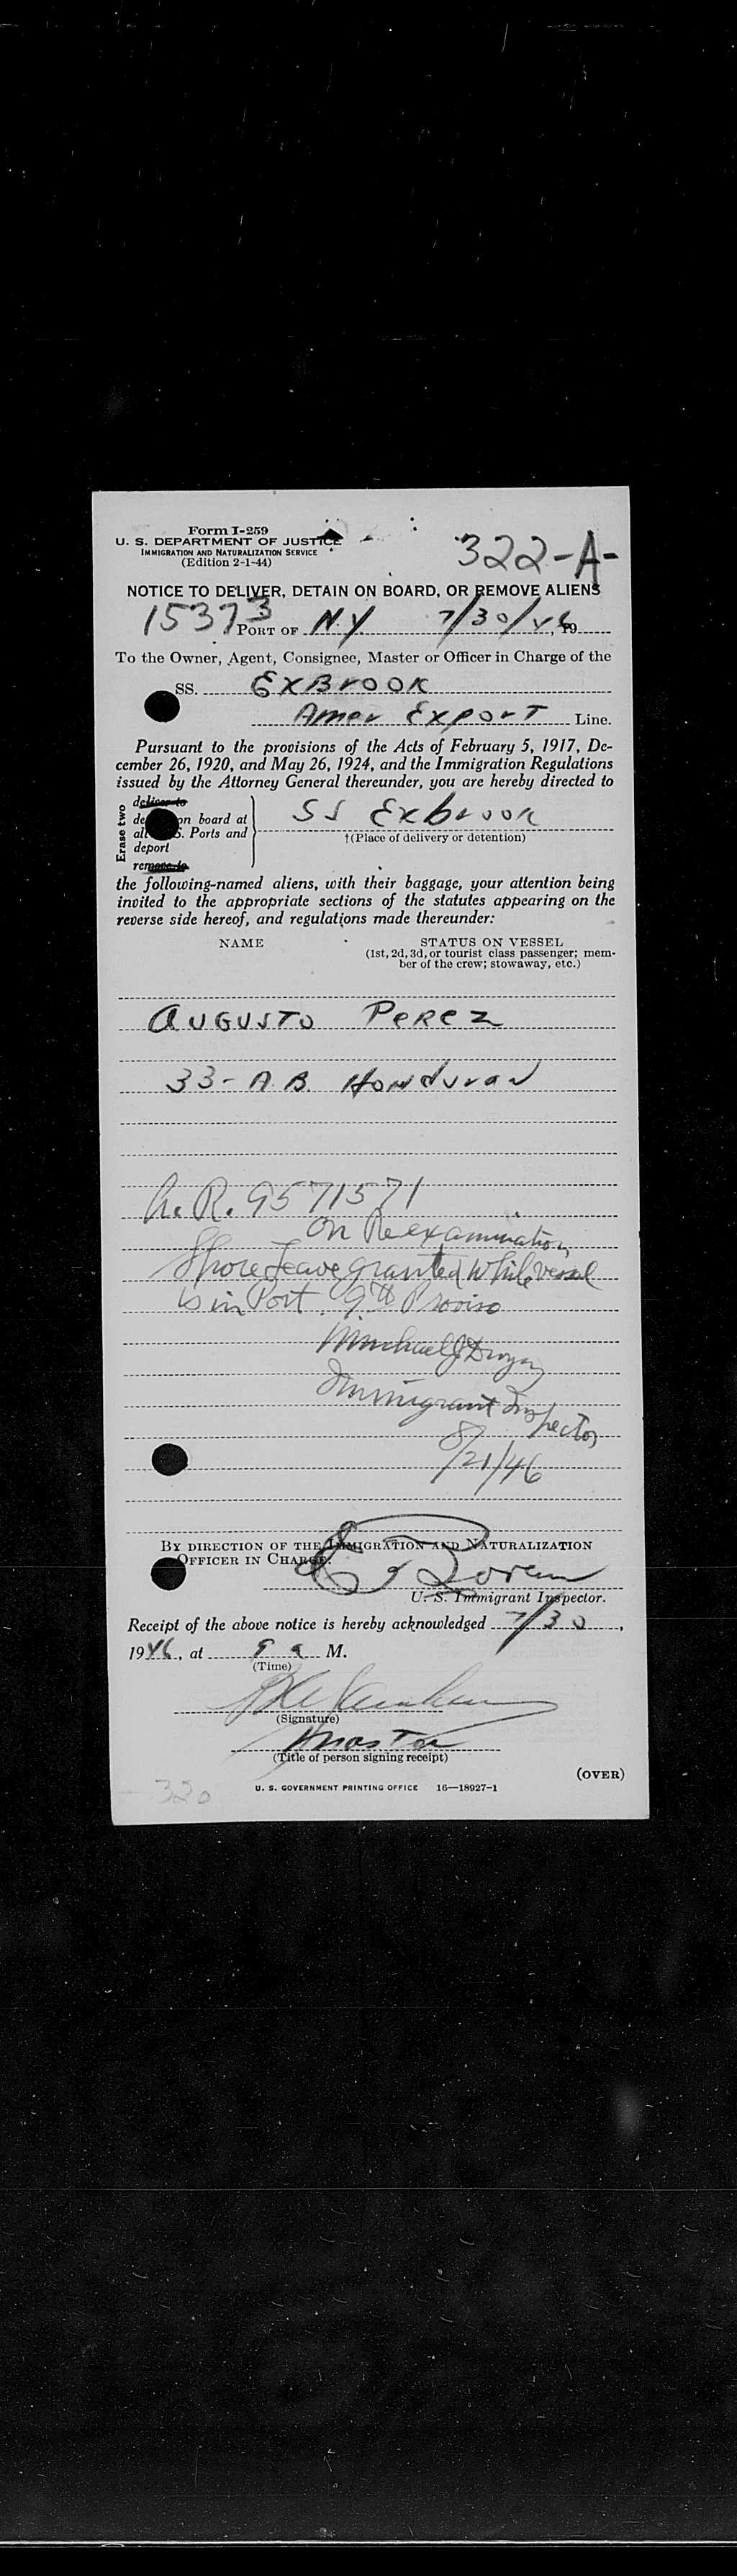 Form I-259
U. S. DEPARTMENT OF JUSTICE
IMMIGRATION AND NATURALIZATION SERVICE
(Edition 2-1-44)
322-A-
NOTICE TO DELIVER, DETAIN ON BOARD, OR REMOVE ALIENS
15373 PORT OF N.Y 7/30/46, 19
To the Owner, Agent, Consignee, Master or Officer in Charge of the
SS. EXBROOK
Amer Export Line.
Pursuant to the provisions of the Acts of February 5, 1917, De-
cember 26, 1920, and May 26, 1924, and the Immigration Regulations
issued by the Attorney General thereunder, you are hereby directed to
Erase two
deliver to
de on board at
all S. Ports and
deport
remove to
SS Exbrook
†(Place of delivery or detention)
the following-named aliens, with their baggage, your attention being
invited to the appropriate sections of the statutes appearing on the
reverse side hereof, and regulations made thereunder:
NAME
STATUS ON VESSEL
(1st, 2d, 3d, or tourist class passenger; mem-
ber of the crew; stowaway, etc.)
AUGUSTO PEREZ
33- A.B. HONDURAN
A.R. 9571571
On Reexamination
Shore Leave granted while vessel
is in Port. 9th Proviso
Immigrant Inspector
8/21/46
BY DIRECTION OF THE IMMIGRATION AND NATURALIZATION
OFFICER IN CHARGE:
U. S. Immigrant Inspector.
Receipt of the above notice is hereby acknowledged 7/30,
1946, at 9 a M.
(Time)
(Signature)
Master
(Title of person signing receipt)
(OVER)
320
U. S. GOVERNMENT PRINTING OFFICE 16—18927-1